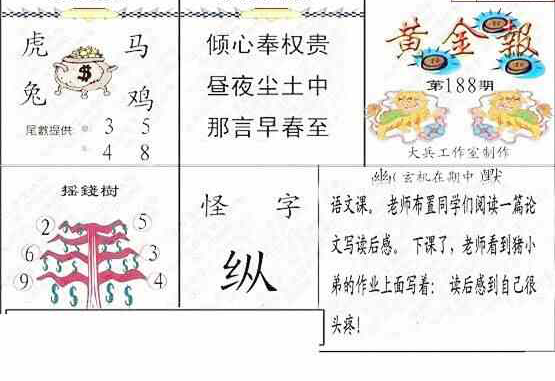 虎 马
$
兔 鸡
尾數提供 3 5
4 8
倾心奉权贵
昼夜尘土中
那言早春至
黄金報
第188期
大兵工作室制作
摇錢樹
2 5
6 3
9 4
$ $ $ $
怪 字
纵
幽(玄机在期中 默
语文课。 老师布置同学们阅读一篇论
文写读后感。 下课了，老师看到猪小
弟的作业上面写着： 读后感到自己很
头疼!